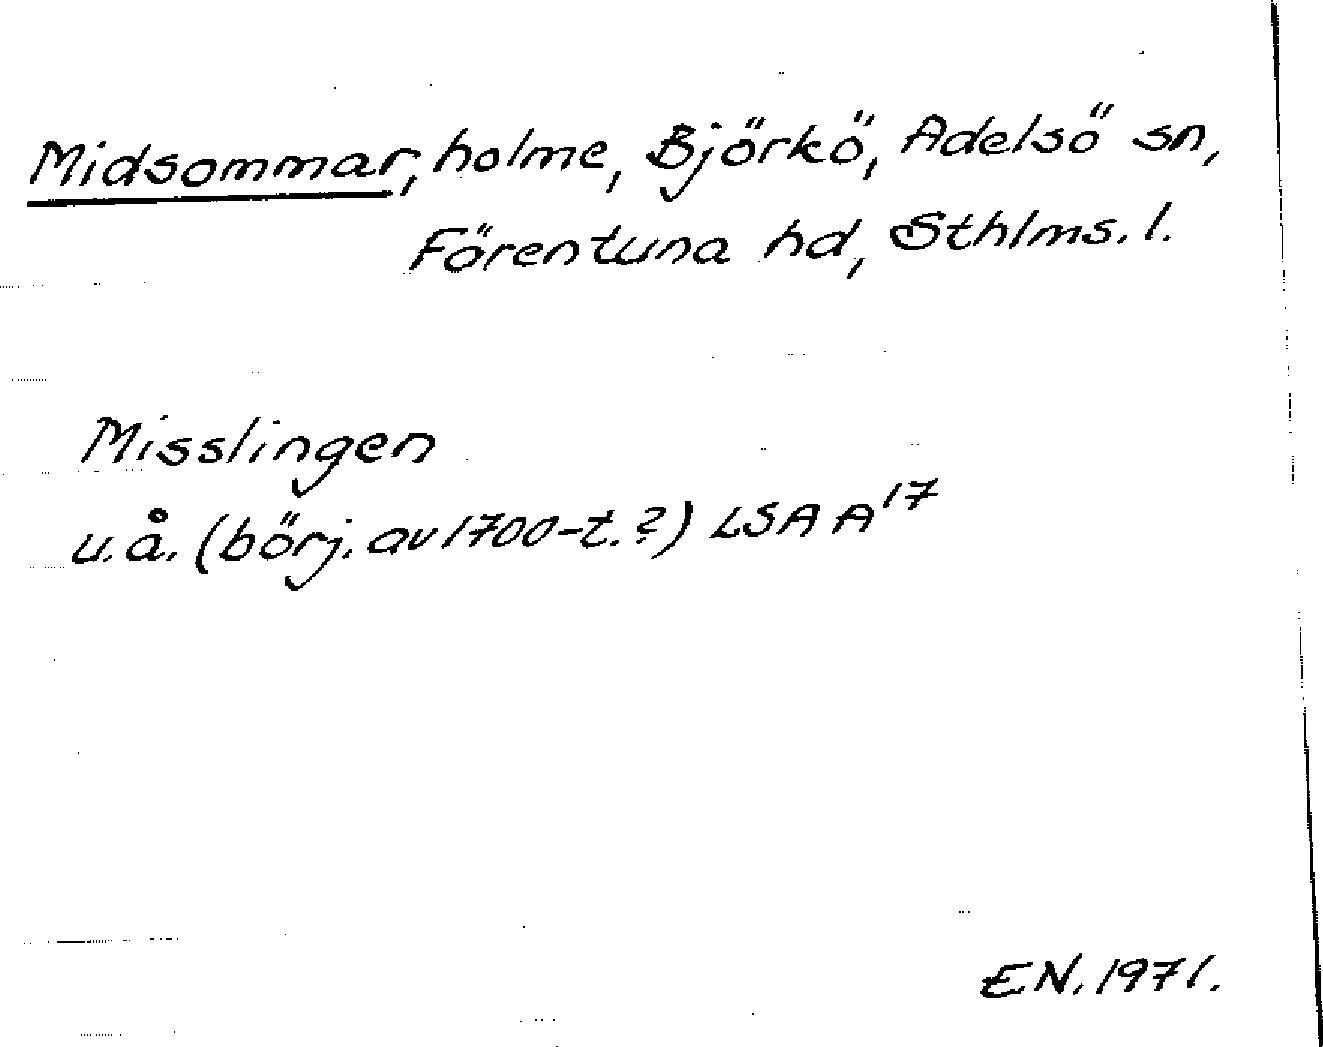 Midsommar, holme, Björkö, Adelsö sn,
Förentuna hd, Sthlms. l.
Misslingen
u.å. (börj. av 1700-t.?) LSA A¹⁷
EN. 1971.